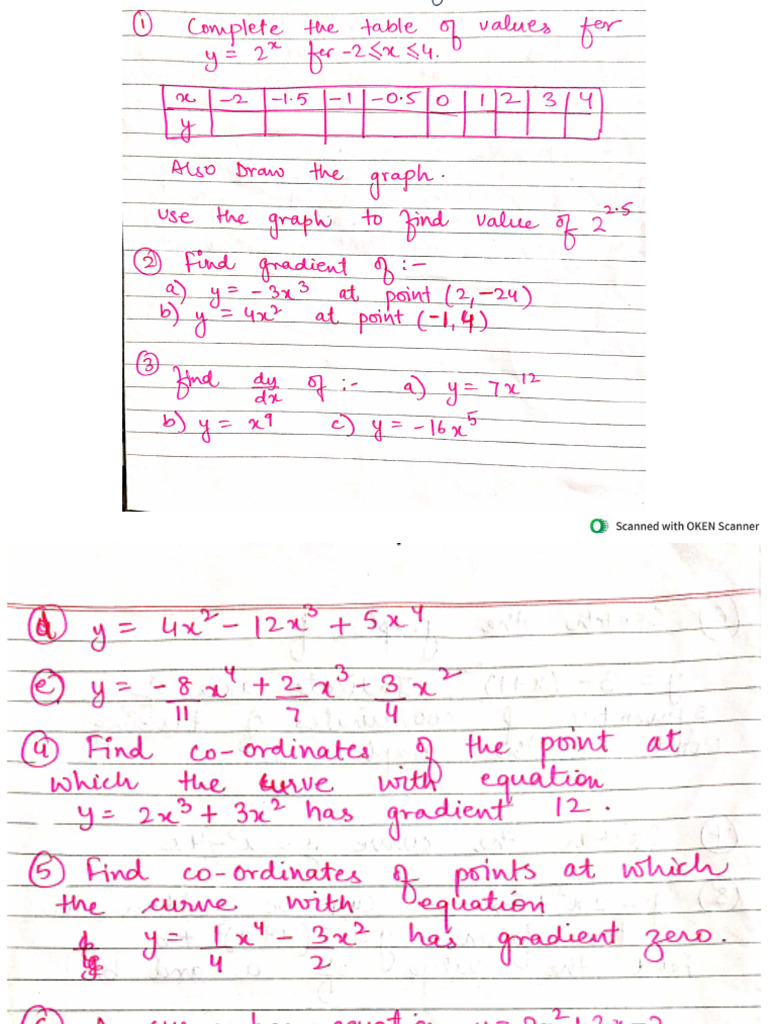 ① Complete the table of values for
y = 2ˣ for -2 ≤ x ≤ 4.
x | -2 | -1.5 | -1 | -0.5 | 0 | 1 | 2 | 3 | 4
y
Also Draw the graph.
use the graph to find value of 2^2.5
② Find gradient of :-
a) y = -3x³ at point (2, -24)
b) y = 4x² at point (-1, 4)
③
find dy/dx of :- a) y = 7x¹²
b) y = x⁹ c) y = -16x⁵
Scanned with OKEN Scanner
ⓓ y = 4x² - 12x³ + 5x⁴
ⓔ y = -8/11 x⁴ + 2/7 x³ - 3/4 x²
④ Find co-ordinates of the point at
which the curve with equation
y = 2x³ + 3x² has gradient 12.
⑤ Find co-ordinates of points at which
the curve with equation
y = 1/4 x⁴ - 3x²/2 has gradient zero.